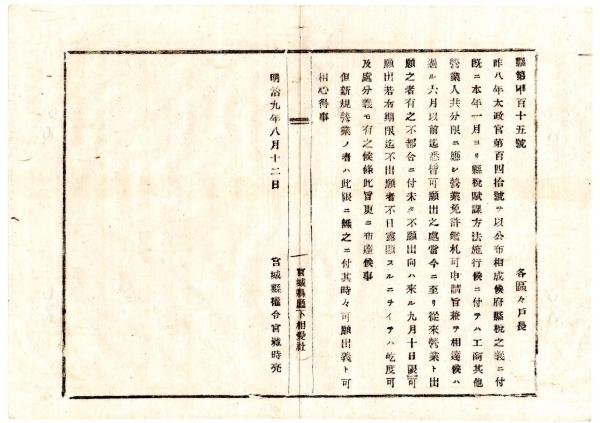 縣第甲百十五號
各區々戶長
昨八年太政官第百四拾號ヲ以公布相成候府縣稅之義ニ付
既ニ本年一月ヨリ縣稅賦課方法施行候ニ付テハ工商其他
營業人共分限ニ應シ營業免許鑑札可申請旨兼テ相達候ハ
過ル六月以前迄悉皆可願出之處當今ニ至リ從來營業ト出
願之者有之不都合ニ付未タ不願出向ハ來ル九月十日限可
願出若右期限迄不出願者不日露顯スルニヲイテハ屹度可
及處分義モ有之候條此旨更ニ布達候事
但新規營業ノ者ハ此限ニ無之ニ付其時々可願出義ト可
相心得事
宮城縣廳下相愛社
明治九年八月十二日
宮城縣權令宮城時亮